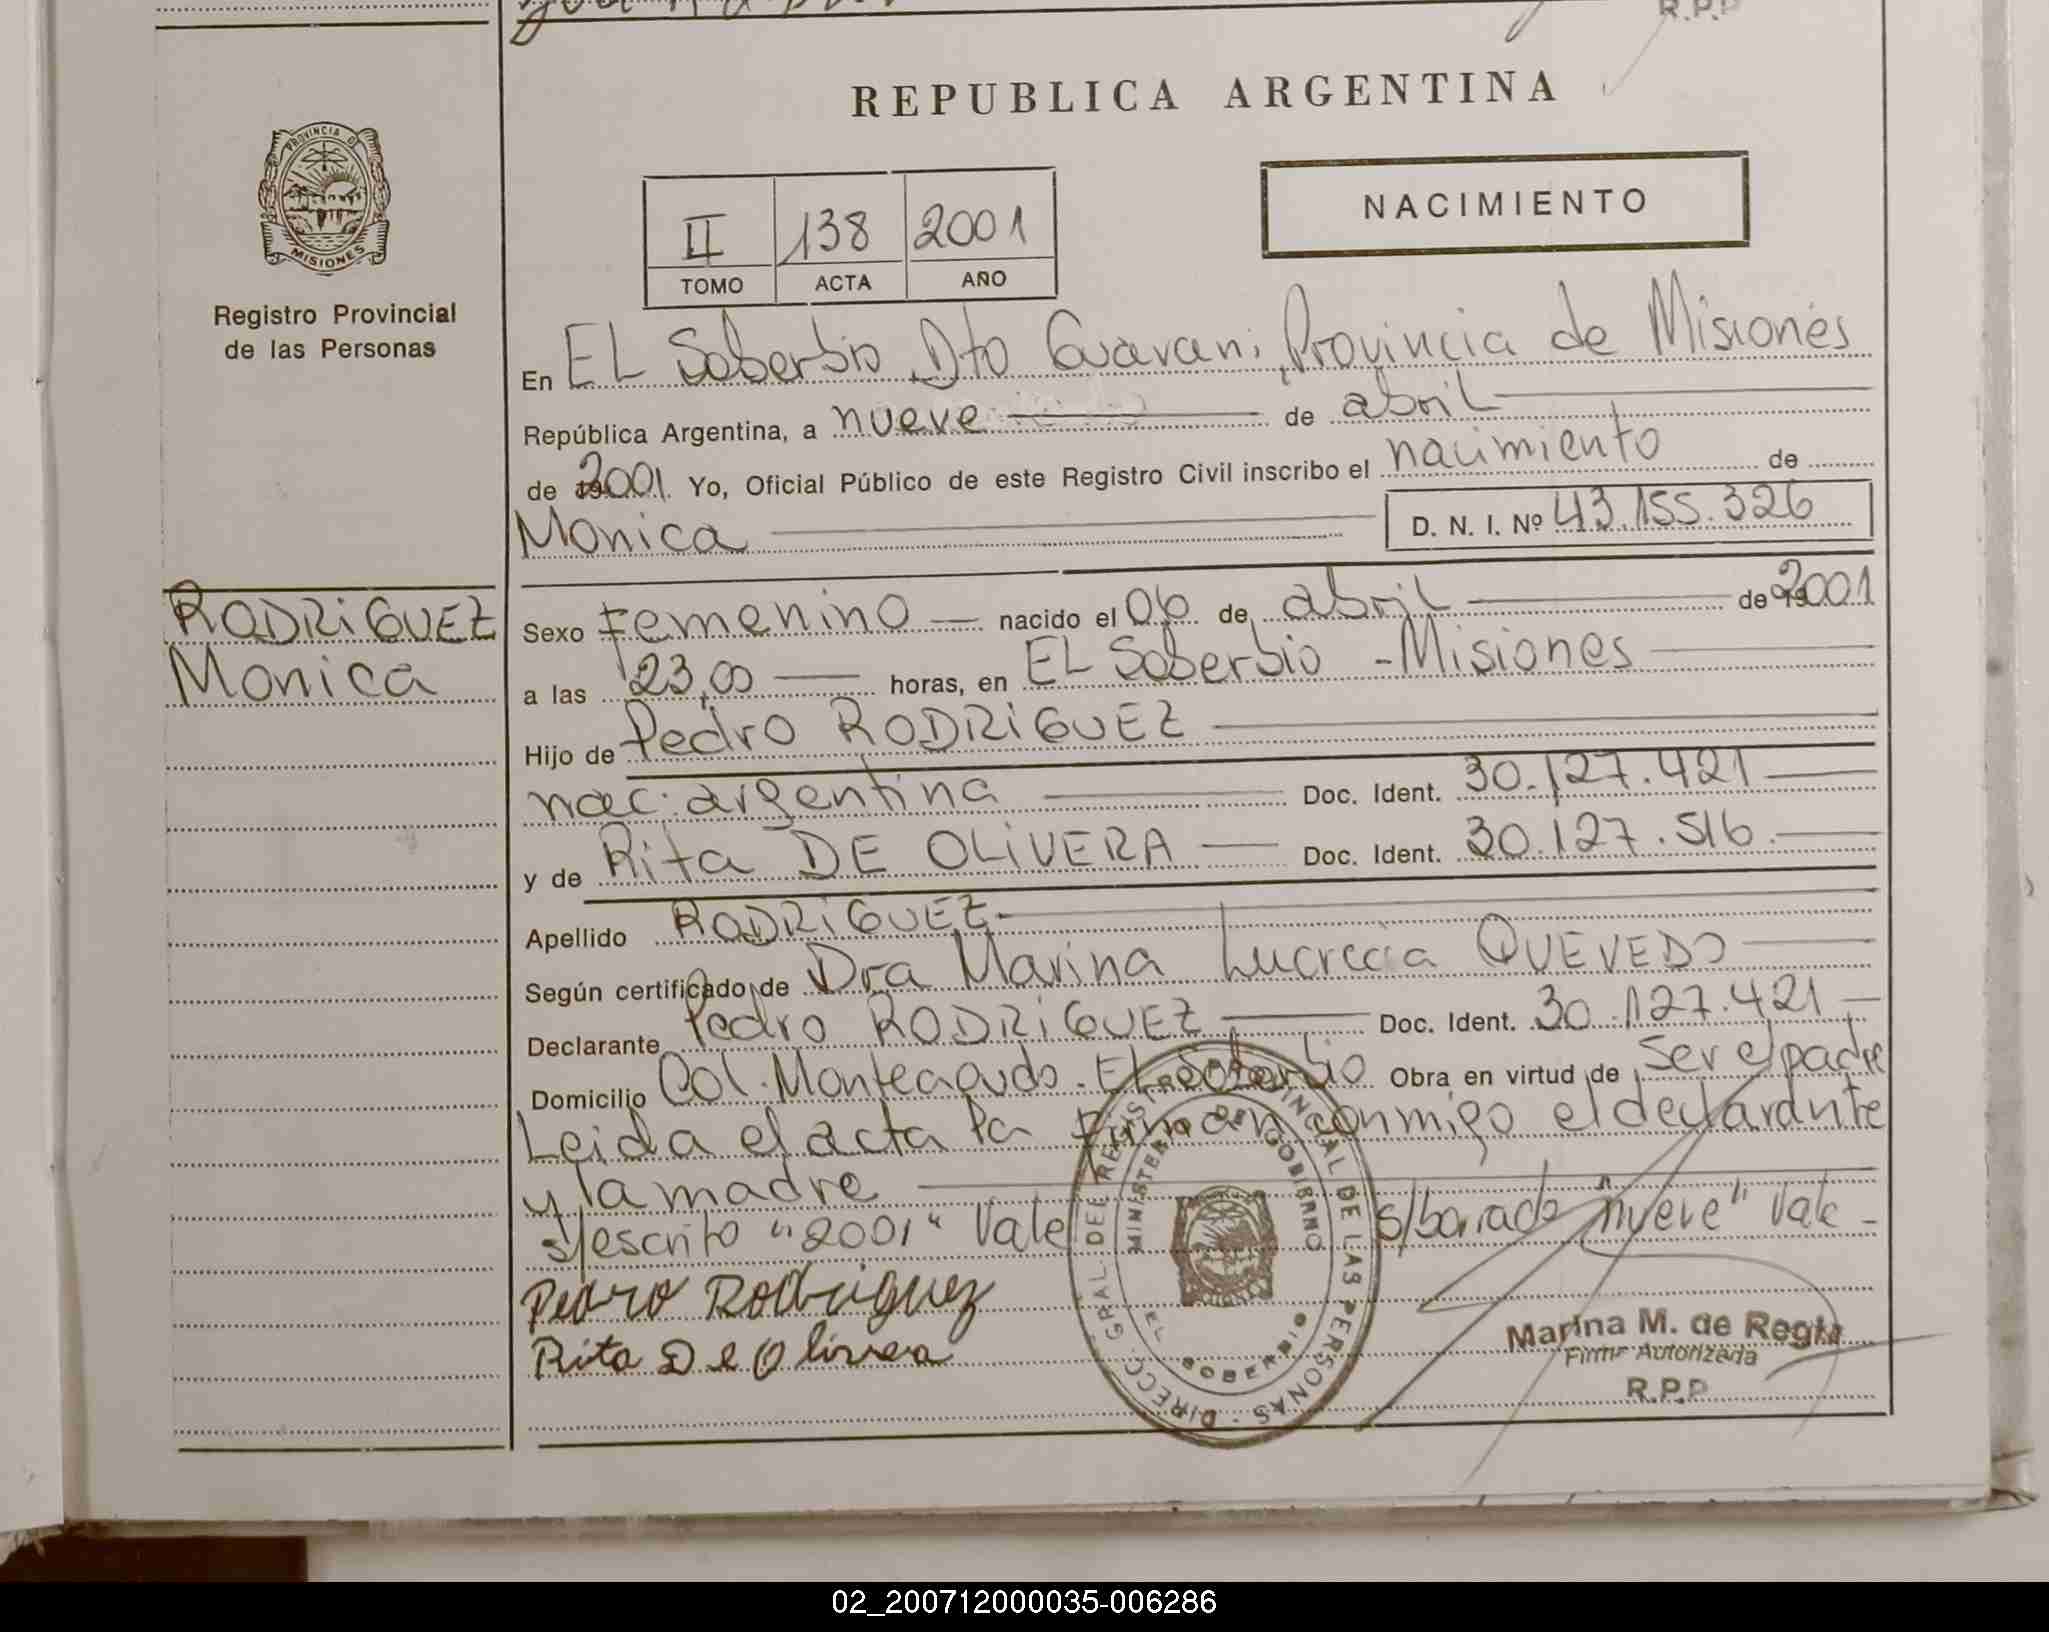 R.P.P
REPUBLICA ARGENTINA
PROVINCIA D
MISIONES
Registro Provincial
de las Personas
II 138 2001
TOMO ACTA AÑO
NACIMIENTO
En EL Soberbio Dto Guarani, Provincia de Misiones
República Argentina, a nueve de abril
de 2001. Yo, Oficial Público de este Registro Civil inscribo el nacimiento de
Monica D. N. I. Nº 43.155.326
RODRiGUEZ
Monica
Sexo Femenino nacido el 06 de abril de 2001
a las 23,00 horas, en EL Soberbio - Misiones
Hijo de Pedro RODRiGUEZ
nac: argentina Doc. Ident. 30.127.421
y de Rita DE OLiVERA Doc. Ident. 30.127.516.
Apellido RODRiGUEZ
Según certificado de Dra Marina Lucrecia QUEVEDO
Declarante Pedro RODRiGUEZ Doc. Ident. 30.127.421
Domicilio Col. Monteagudo. El Soberbio Obra en virtud de ser el padre
Leida el acta la firman conmigo el declarante
y la madre
s/escrito "2001" Vale s/borrado "nueve" Vale -
Pedro Rodriguez
Rita De Olivera
DIRECC. GRAL. DEL REGIST. PROVINCIAL DE LAS PERSONAS -
MINISTERIO DE GOBIERNO
EL SOBERBIO
Marina M. de Regis
Firma Autorizada
R.P.P
02_200712000035-006286